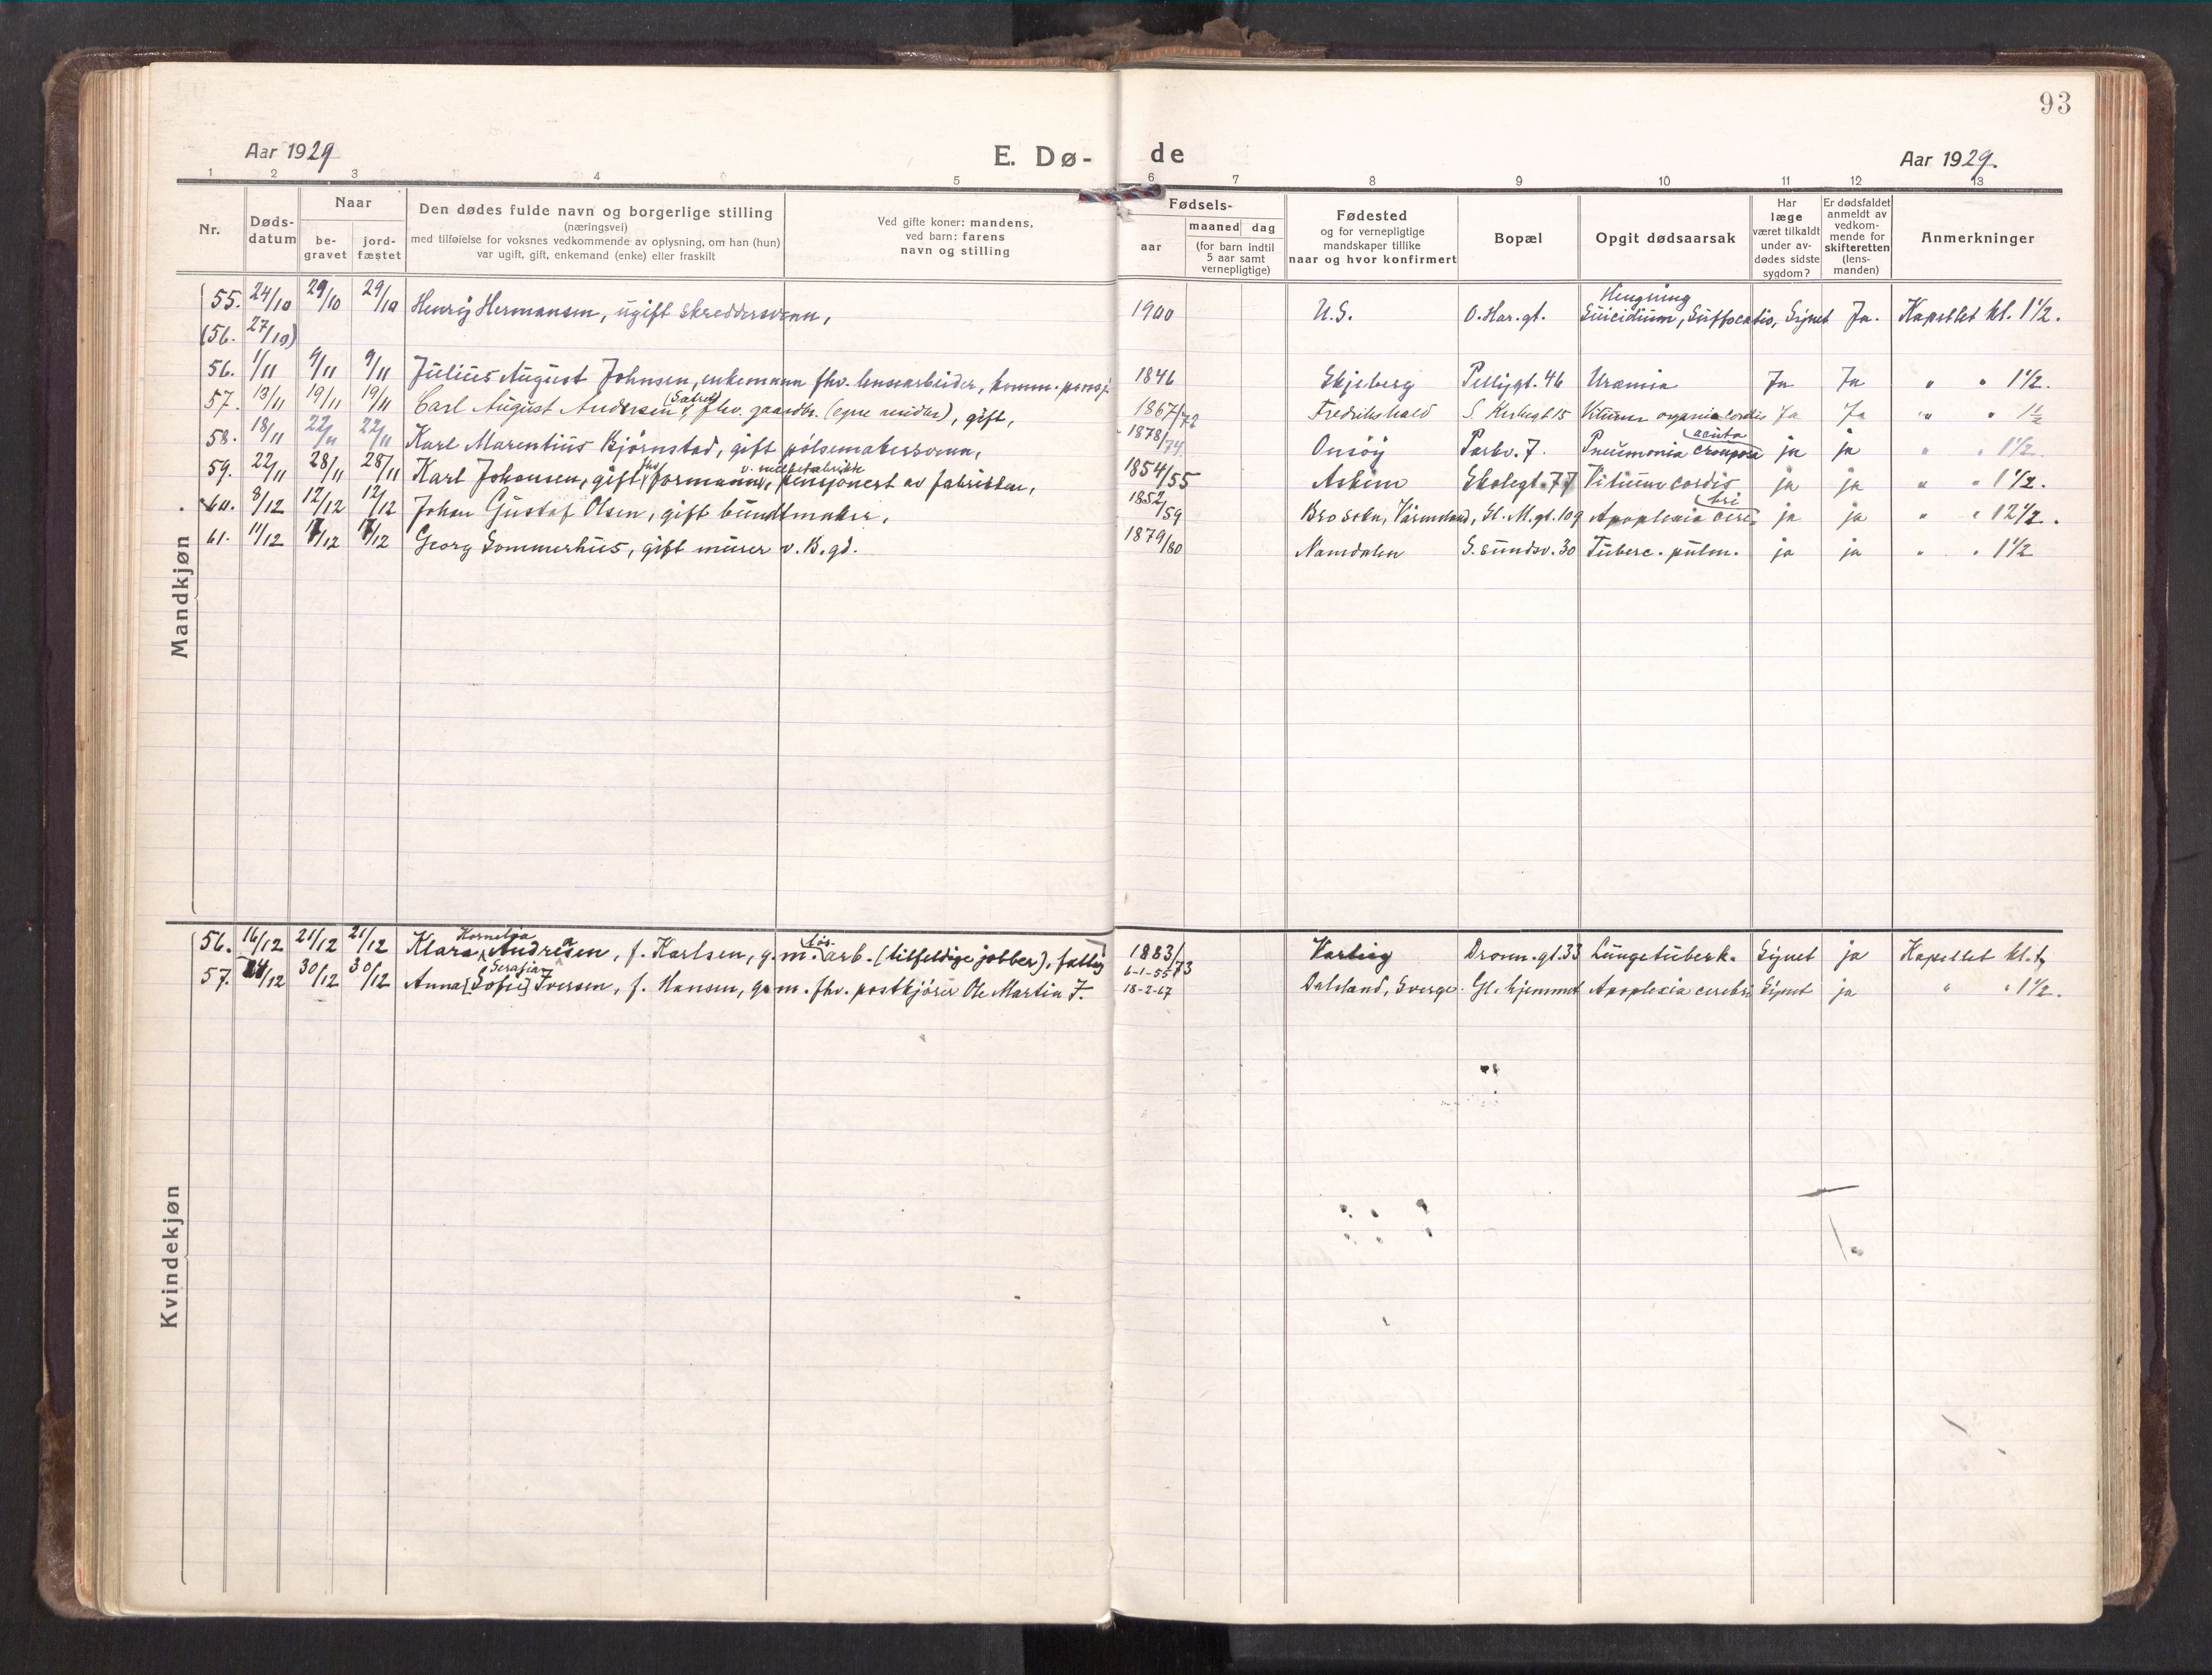 93
Aar 1929
E. Dø- de
Aar 1929.
1 2 3 4 5 6 7 8 9 10 11 12 13
Nr.
Døds-
datum
Naar
be-
gravet
jord-
fæstet
Den dødes fulde navn og borgerlige stilling
(næringsvei)
med tilføielse for voksnes vedkommende av oplysning, om han (hun)
var ugift, gift, enkemand (enke) eller fraskilt
Ved gifte koner: mandens,
ved barn: farens
navn og stilling
Fødsels-
aar
maaned dag
(for barn indtil
5 aar samt
vernepligtige)
Fødested
og for vernepligtige
mandskaper tillike
naar og hvor konfirmert
Bopæl
Opgit dødsaarsak
Har
læge
været tilkaldt
under av-
dødes sidste
sygdom?
Er dødsfaldet
anmeldt av
vedkom-
mende for
skifteretten
(lens-
manden)
Anmerkninger
Mandkjøn
Hengning
55. 24/10 29/10 29/10 Henry Hermansen, ugift skreddersvenn, 1900 U.S. O.Har.gt. Suicidium, Suffocatio, Synet Ja. Kapellet kl. 1 1/2.
(56. 27/10)
56. 1/11 9/11 9/11 Julius August Johnsen, enkemann fhv. lensearbeider, komm. pensj. 1846 Skjeberg Pelligt. 46 Uræmia Ja Ja " " 1 1/2.
57. 13/11 19/11 19/11 Carl August Andersen fhv. gaardbr. (egne midler), gift, 1867/72 Fredrikshald S. Kirkegt. 15 Vitium organic cordis Ja Ja " " 1 1/2
acuta
58. 18/11 22/11 22/11 Karl Marentius Bjørnstad, gift pølsemakersvenn, 1878/74 Onsøy Parkv. 7. Pneumonia crouposa ja ja " " 1 1/2.
fhv. v. melkefabrikk
59. 22/11 28/11 28/11 Karl Johansen, gift formann, pensjonert av fabrikken, 1854/55 Askim Skolegt. 77 Vitium cordis ja ja " " 1 1/2.
bri
60. 8/12 12/12 12/12 Johan Gustaf Olsen, gift buntmaker, 1852/59 Värmland, Gl. M.gt. 109 Apoplexia cere ja ja " " 12 1/2.
61. 11/12 17/12 17/12 Georg Sommerhus, gift murer v. B.gd. 1879/80 Namdalen G. sundsv. 30 Tuberc. pulm. ja ja " " 1 1/2
Kvindekjøn
Kornelia løs-
56. 16/12 21/12 21/12 Klara Andresen, f. Karlsen, g. m. arb. (tilfeldige jobber), fattig 1883/73 Varteig Dronn.gt. 33 Lungetuberk. Synet ja Kapellet kl. 1
Serafia 6-1-55
57. 24/12 30/12 30/12 Anna [Sofie] Iversen, f. Hansen, g. m. fhv. postkjører Ole Martin I. 18-2-67 Dalsland, Sverge Gl. hjemmet Apoplexia cerebri Synet ja " " 1 1/2.